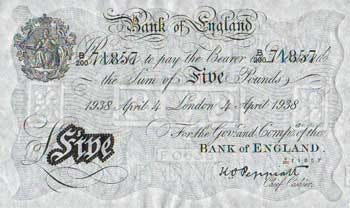 Bank of England
B/200 71857 B/200 71857
to pay the Bearer
the Sum of Five Pounds
1938 April 4 London 4 April 1938
For the Gov: and Comp: of the
BANK OF ENGLAND.
Five
K O Peppiatt
Chief Cashier